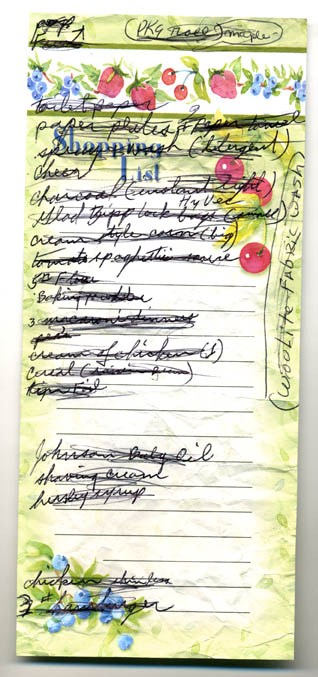 (PKG Roll) maple
toilet paper
paper plates Paper towel
(detergent)
Shopping
List
cheer
charcoal (instant light)
Hy Vee
Glad zipp lock bags (small)
cream style corn (big)
tomato spaghetti sauce
5# Flour
Baking powder
3 macaroni dinners
cream of chicken (1)
cereal
Johnson Baby Oil
shaving cream
hershey syrup
chicken
3# hamburger
(WOOLITE FABRIC WASH)